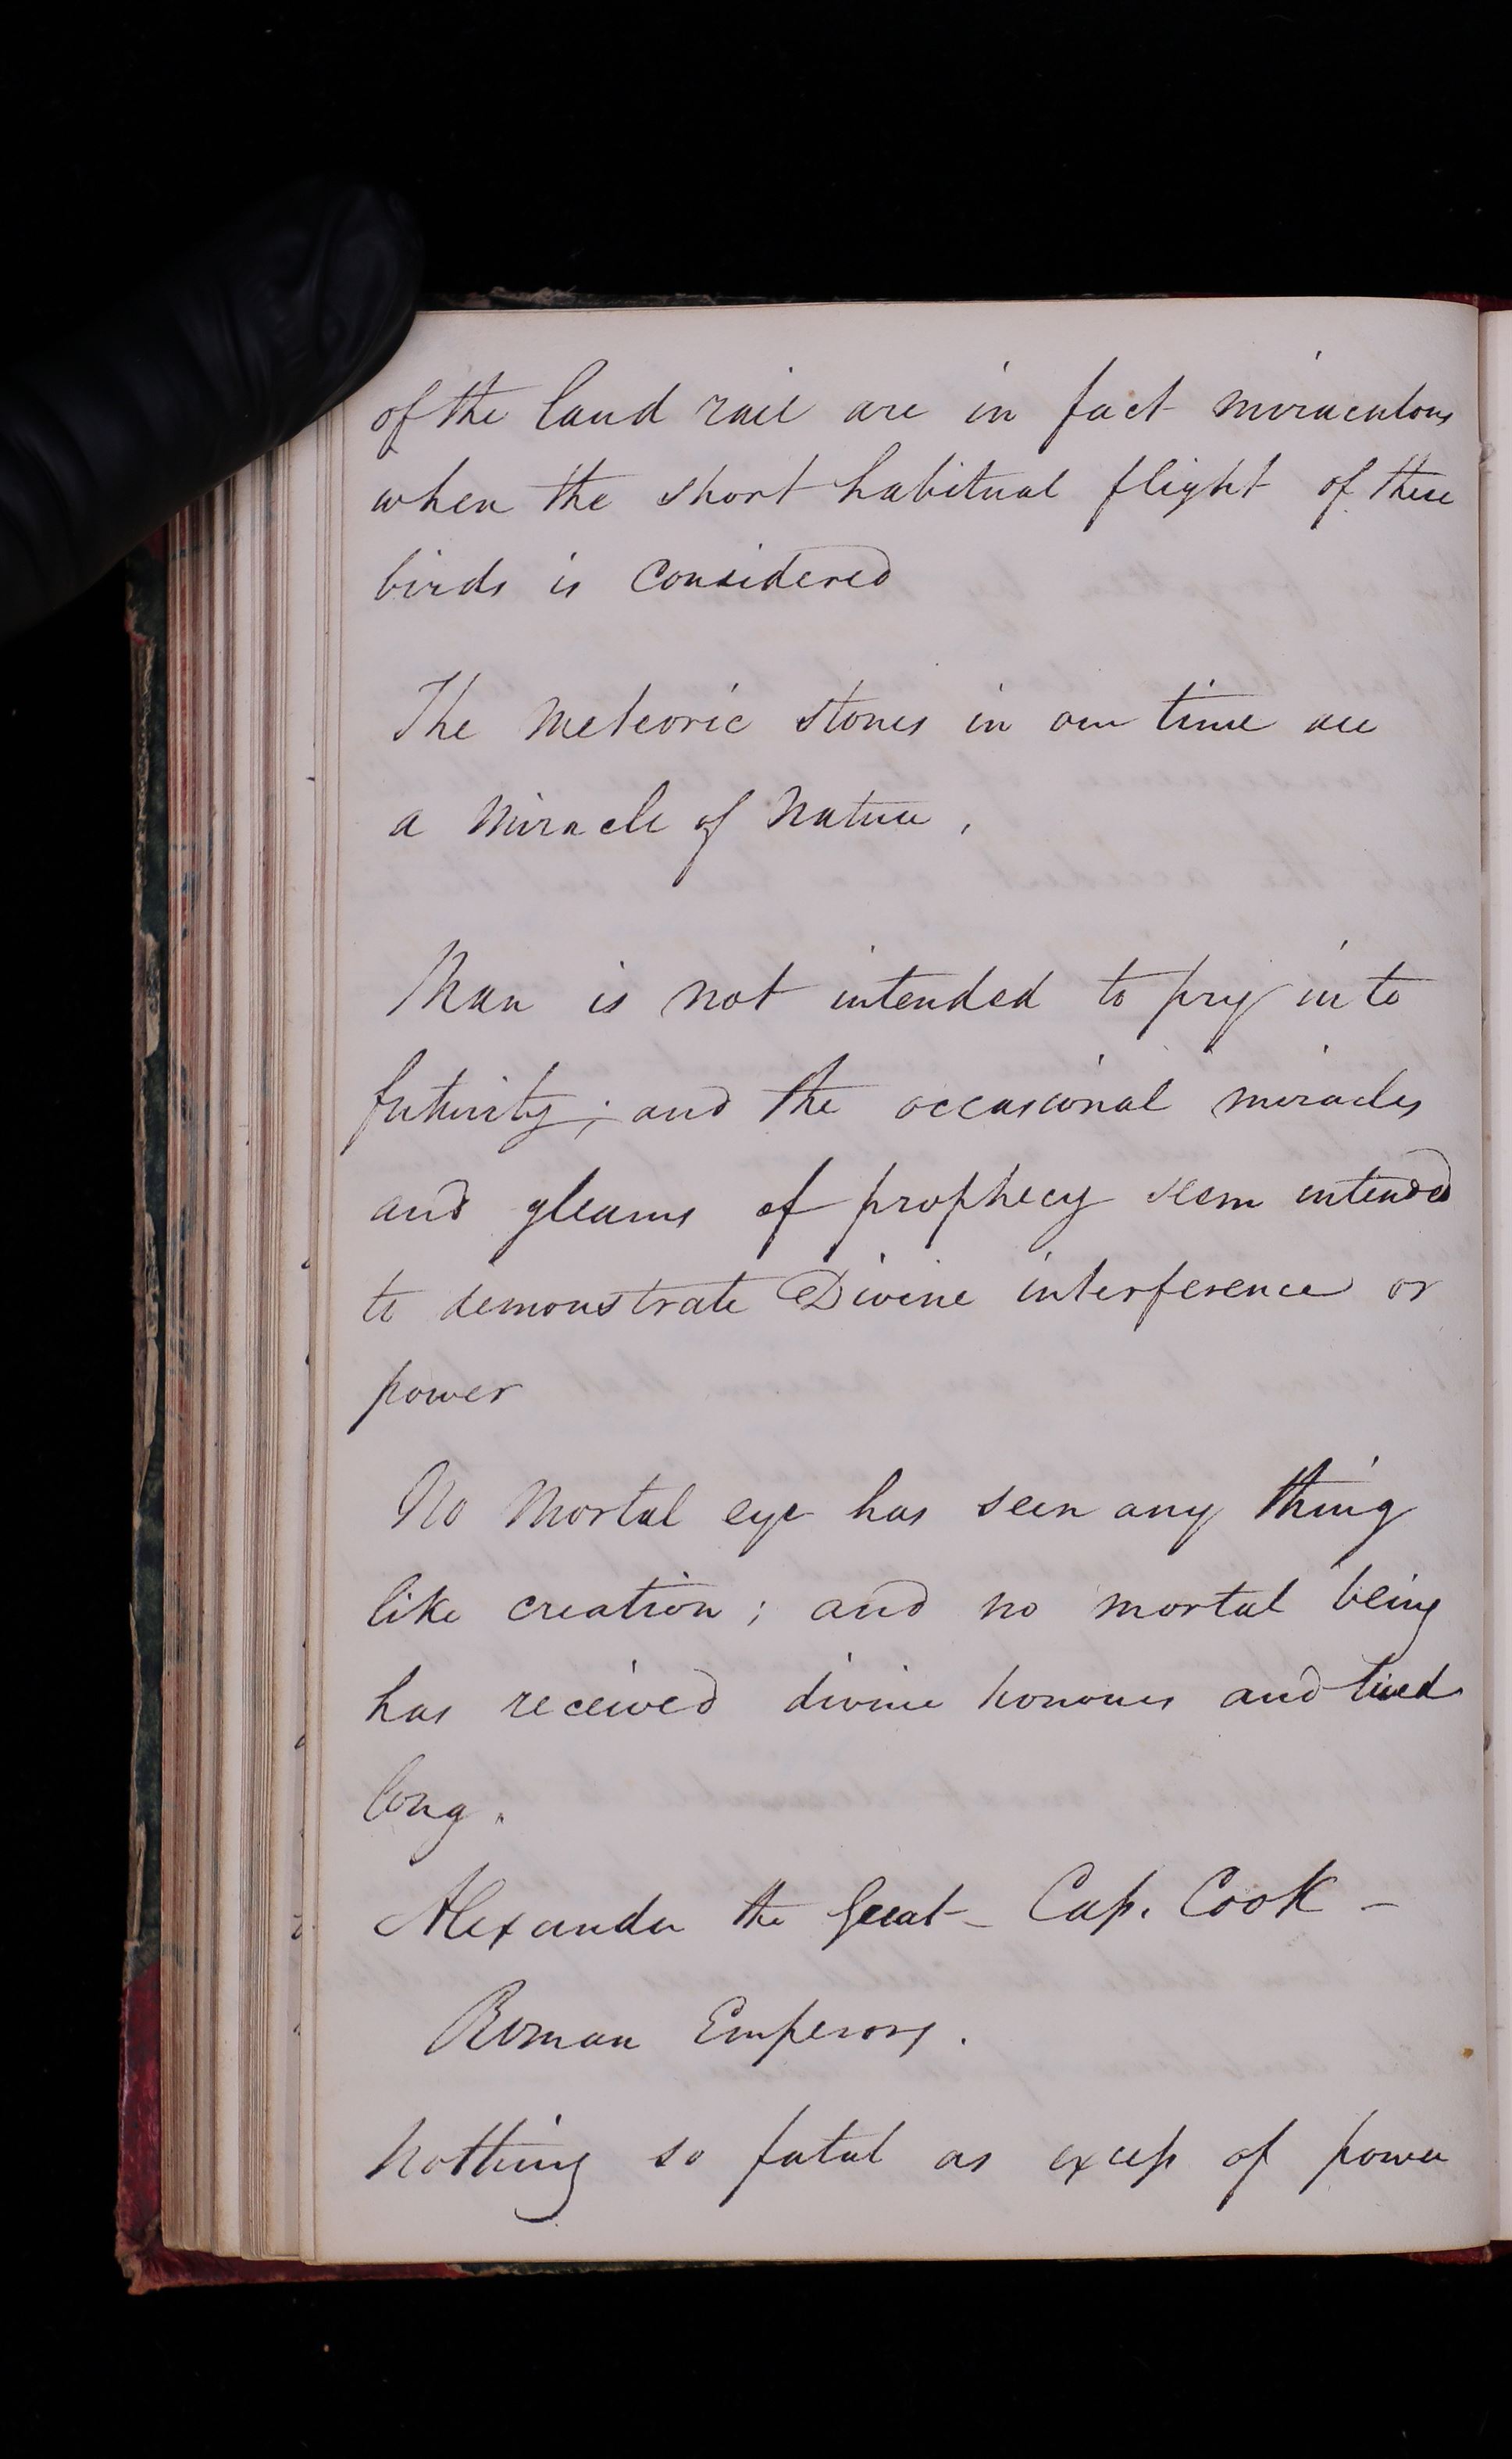 of the land rail are in fact miraculous
when the short habitual flight of these
birds is considered
The Meteoric stones in our time are
a Miracle of Nature.
Man is not intended to pry into
futurity; and the occasional miracles
and gleams of prophecy seem intended
to demonstrate Divine interference or
power
No Mortal eye has seen any thing
like creation; and no mortal being
has received divine honours and lived
long.
Alexander the Great – Cap. Cook –
Roman Emperors.
Nothing so fatal as excess of power